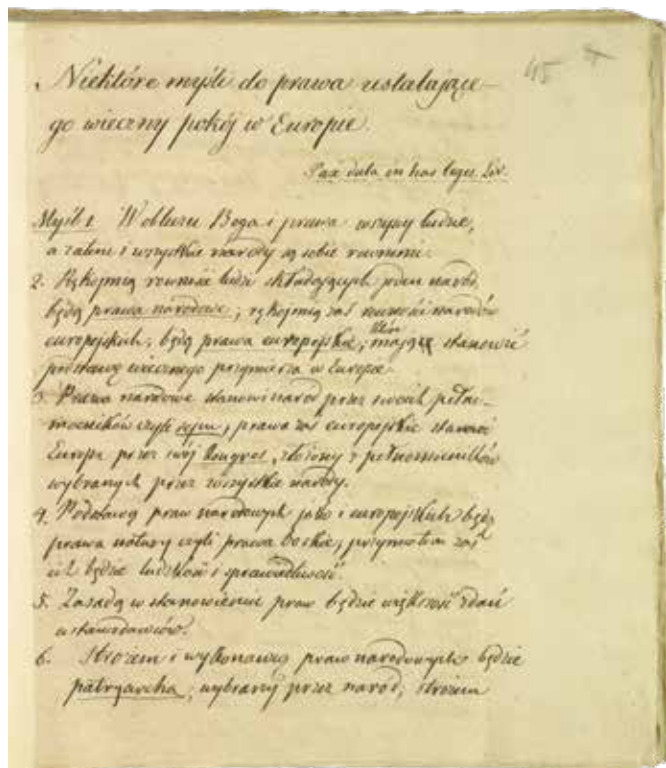 45
Niektóre myśli do prawa ustalające-
go wieczny pokój w Europie.
Pax data in has leges. Liv.
Myśl 1. W obliczu Boga i prawa wszyscy ludzie,
a zatem i wszystkie narody są sobie rownemi.
2. Rękojmią rowności ludzi składających jeden naród,
będą prawa narodowe; rękojmią zaś rowności narodów
europejskich, będą prawa europejskie, mające stanowić
podstawę wiecznego przymierza w Europie.
3. Prawa narodowe stanowi naród przez swoich pełno-
mocników czyli sejm, prawa zaś europejskie stanowi
Europa przez swój Kongres, złożony z pełnomocników
wybranych przez wszystkie narody.
4. Podstawą praw narodowych jako i europejskich będą
prawa natury czyli prawa boskie, przymiotem zaś
ich będzie ludzkość i sprawiedliwość.
5. Zasadą w stanowieniu praw będzie większość zdań
ustawodawców.
6. Stróżem i wykonawcą praw narodowych będzie
patryarcha, wybrany przez naród, stróżem